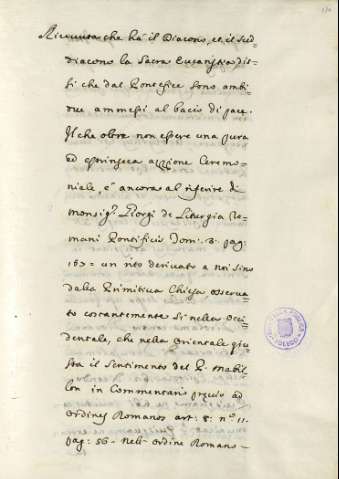 Ricevuta che hà il Diacono, et il Sud
diacono la Sacra Eucaristia dis=
si che dal Pontefice sono ambi
due ammessi al bacio di pace.
Il che oltre non essere una pura
ed estrinseca azzione Ceremo=
niale, e' ancora al riferire di
monsig.r Giorgi de Liturgia Ro=
mani Pontificis Tom: 3. pag:
167 = un rito derivato a noi sino
dalla Primitiva Chiesa osserva
to costantemente sì nella Occi
dentale, che nella Orientale giu
sta il Sentimento del P. Mabil
lon in Commentario previo ad
Ordines Romanos art: 8: n.o 11.
pag: 56 - Nell' ordine Romano -